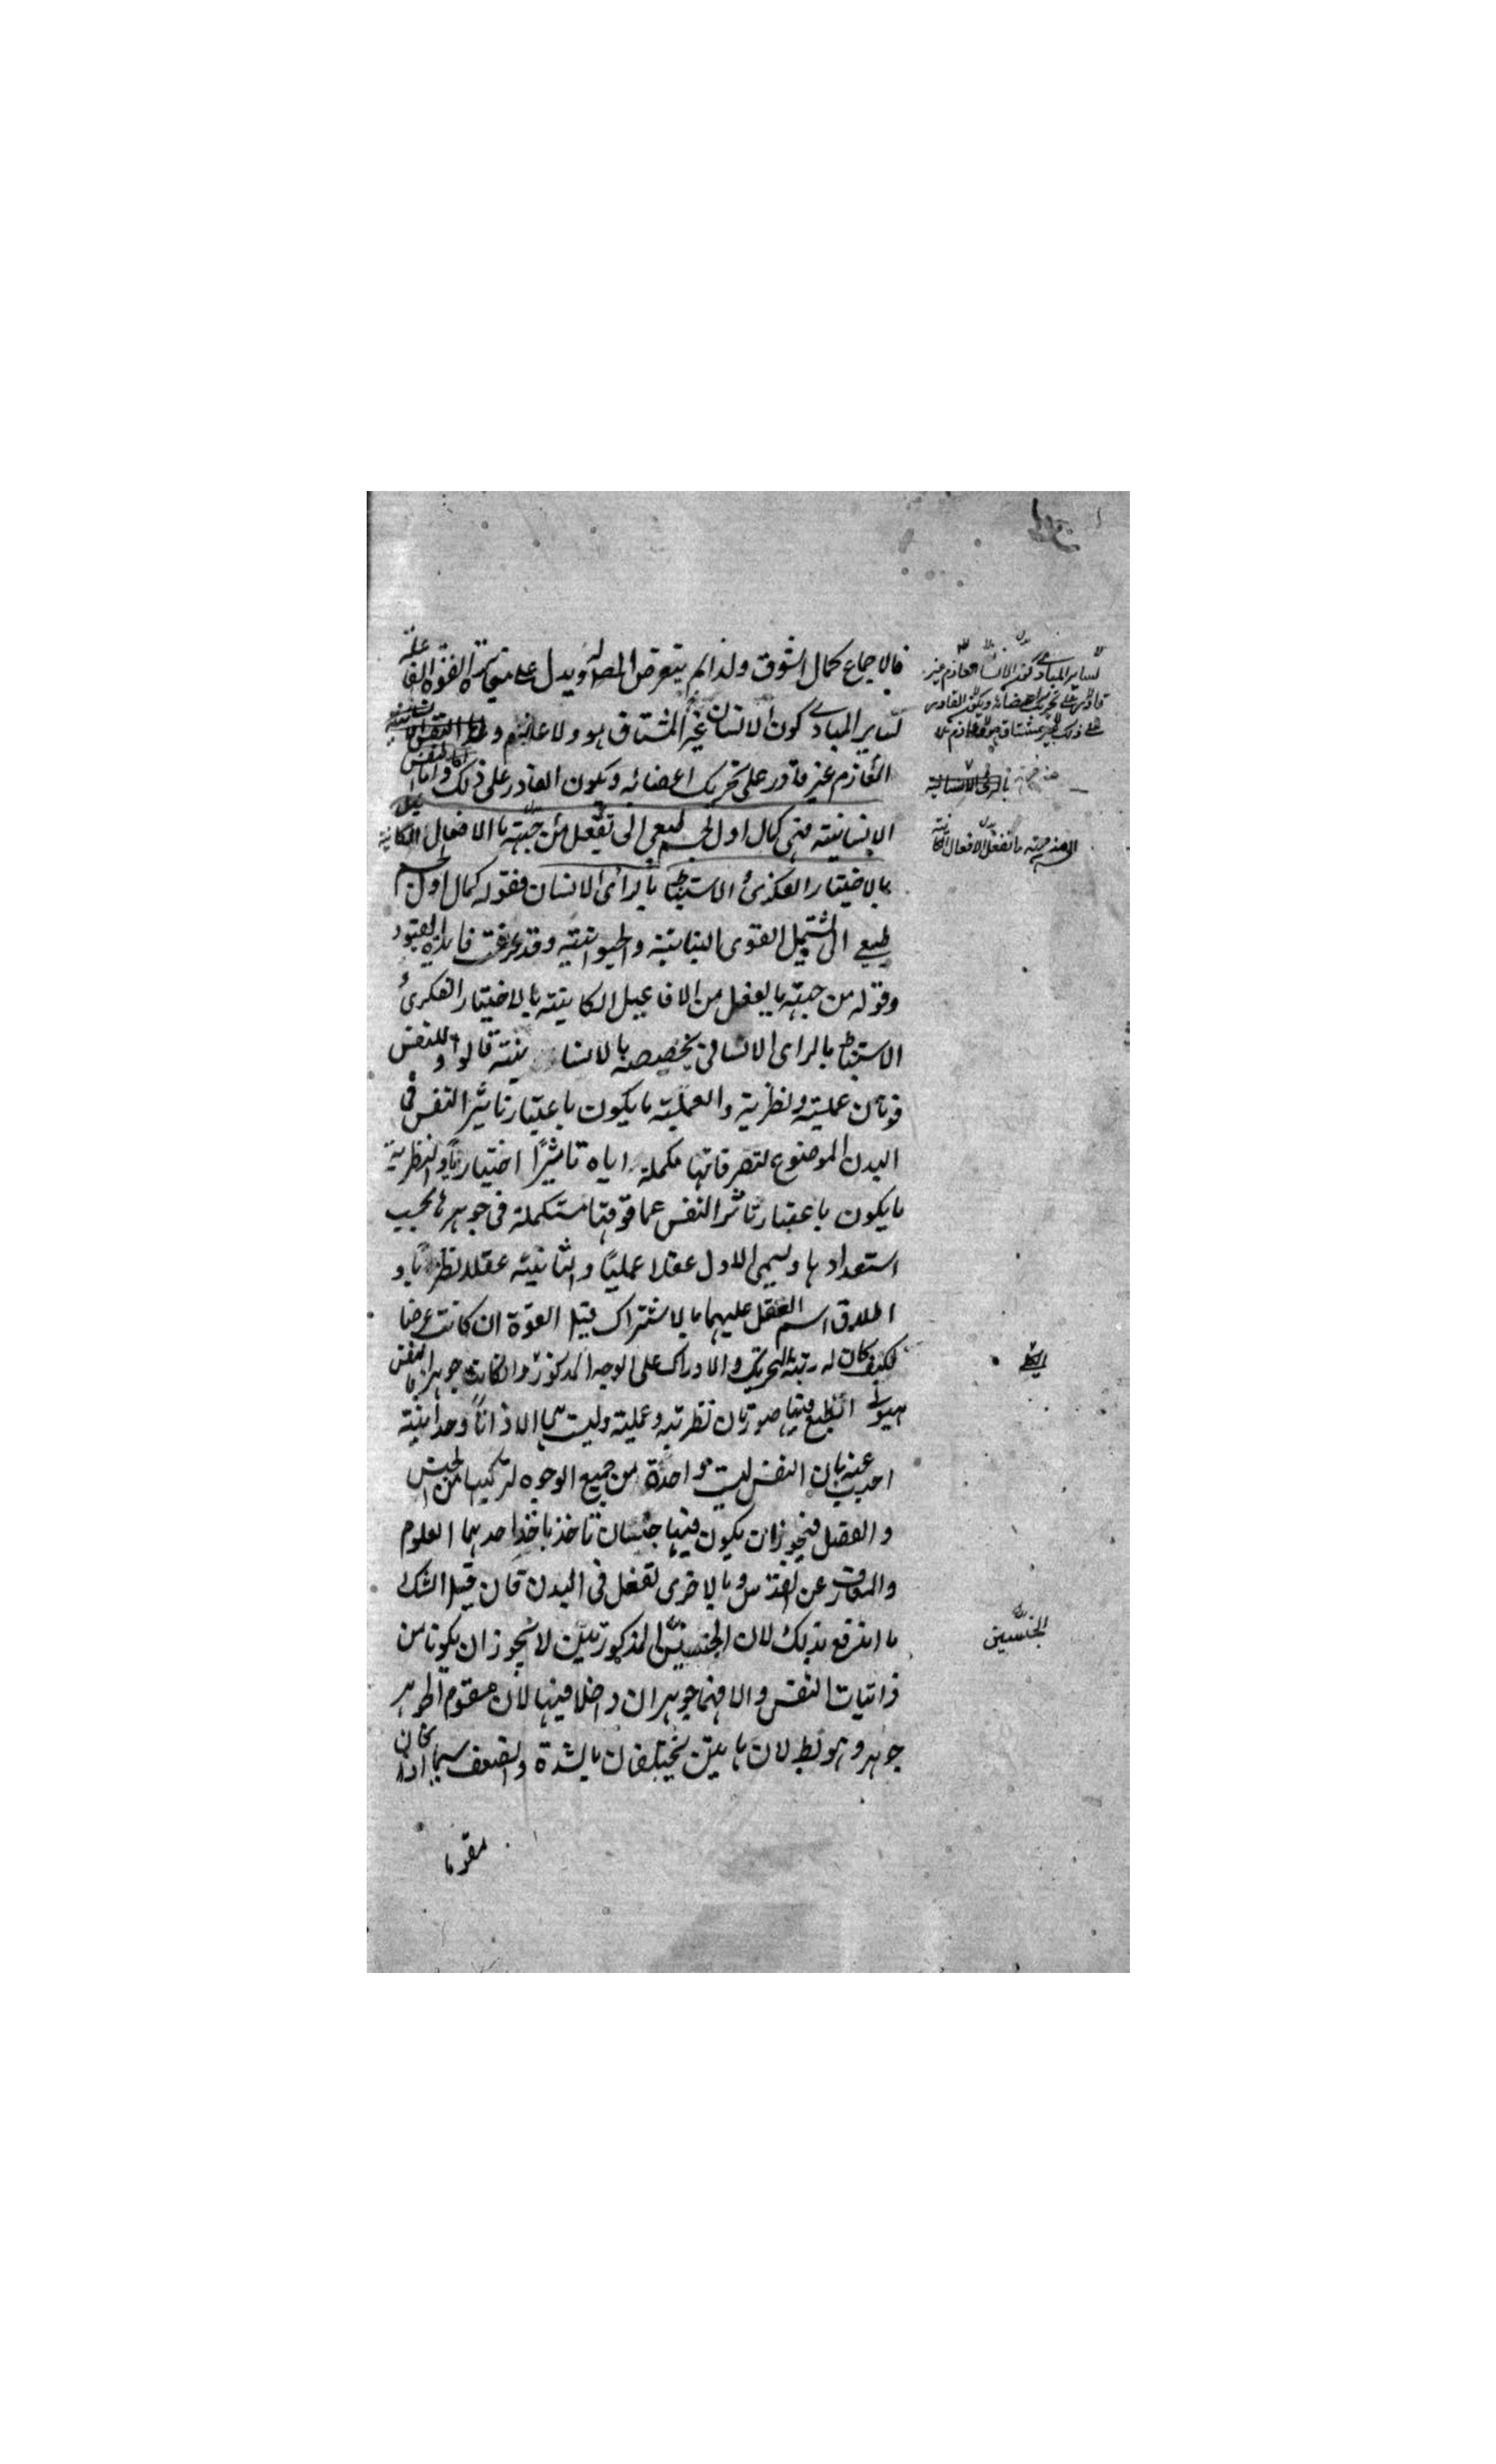 فالاجماع كمال الشوق ولذا لم يتعرض المصـ له ويدل على مغايرة القوة الفاعلة
لساير المبادى كون الانسان غير المشتاق هو ولا
العازم غير قادر على تحريك اعضائه وبكون القادر على ذلك واما النفس
الانسانية فهى كمال اول لجسم طبعى الى تفعل من جهة ما الافعال الكائنة
بالاختيار الفكرى والاستنباط بالرأى الانسان فقوله كمال اول لجسم
طبيعى الى يشتمل القوى النباتية والحيوانية وقد عرفت فايدة القيود
وقوله من جهة ما يفعل من الافاعيل الكاينة بالاختيار الفكرى و
الاستنباط بالراى الانسانى يخصصه بالانسا نية قالوا وللنفس
قوتان عملية ونظرية والعملية ما يكون باعتبار تاثير النفس فى
البدن الموضوع لتصرفاتها مكملة اياه تاثيرًا اختياريًا والنظرية
ما يكون باعتبار تاثر النفس عما فوقها مستكملة فى جوهرها بحسب
استعدادها ويسمى الاول عقلا عمليًا والثانية عقلا نظريًا و
اطلاق اسم العقل عليهما بالاشتراك قيل القوة ان كانت عرضا
فكيف كان له رتبة التحريك والادراك على الوجه المذكور وان كانت جوهرا فالنفس
هيولى انطبع فيها صورتان نظرية وعملية وليست هى الا ذاتًا وحدانية
اجيب عنه بان النفس ليست واحدة من جميع الوجوه لتركيبها من الجنس
والفصل فيجوز ان يكون فيها جنسان تاخذ باحدهما العلوم
والمعارف عن القدس وبالاخرى تفعل فى البدن فان قيل الشك
ما اندفع بذلك لان الجنسين المذكورتين لا يجوز ان يكونا من
ذاتيات النفس والا فهما جوهران داخلا فيها لان مقوم الجوهر
جوهر وهو بط لان هاتين يختلفان بالشدة والضعف سيما اذا كان
مقوما
لساير المبادى كون الانسا العازم غير
قادر على تحريك اعضائه وبكون القادر
على ذلك غير مشتاق ولا عازم
من جهة ما تفعل الافعال الكائنة
الجنسين